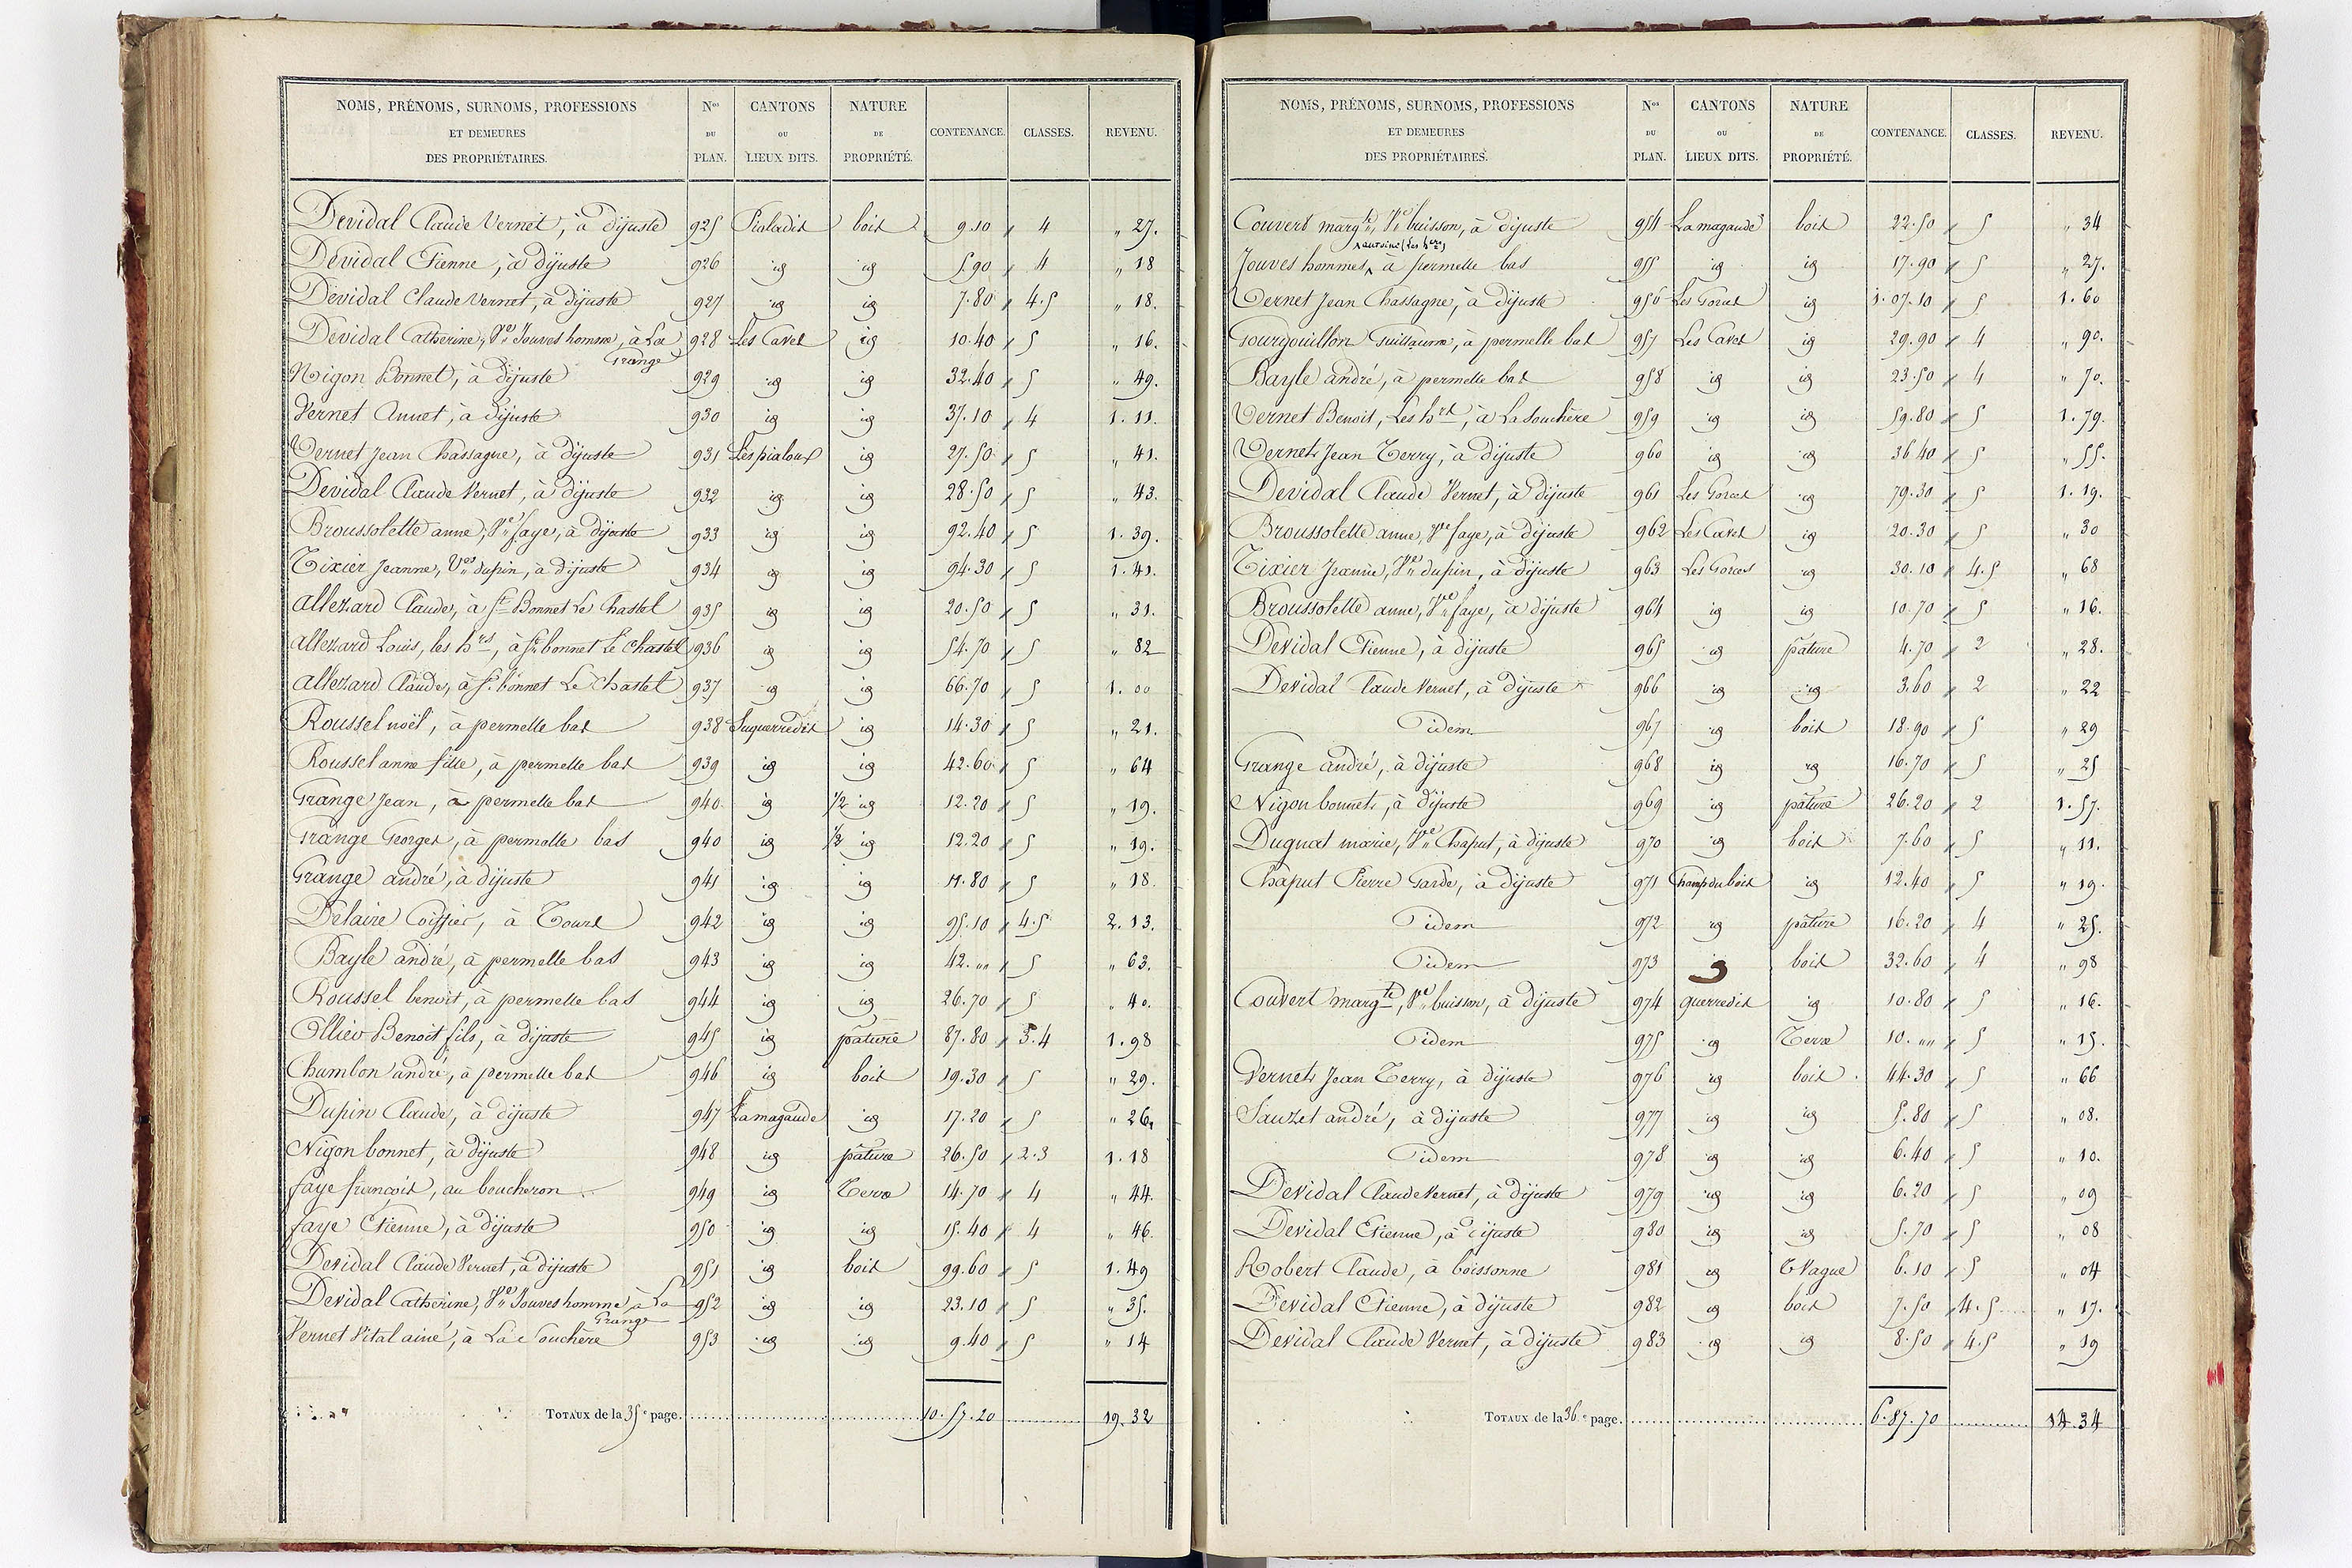 NOMS, PRÉNOMS, SURNOMS, PROFESSIONS ET DEMEURES DES PROPRIÉTAIRES. Nos DU PLAN. CANTONS OU LIEUX DITS. NATURE DE PROPRIÉTÉ. CONTENANCE. CLASSES. REVENU.
Devidal Claude Vernet, à dijuste 925 Pialadis bois 9.10 4 " 27.
Devidal Etienne, à dijuste 926 id id 5.90 4 " 18
Devidal Claude Vernet, à dijuste 927 id id 7.80 4.5 " 18.
Devidal Catherine, Ve Jouves homme, à La Grange 928 Les Caves id 10.40 5 " 16.
Nigon Bonnet, à dijuste 929 id id 32.40 5 " 49.
Vernet Annet, à dijuste 930 id id 37.10 4 1.11.
Vernet Jean Chassagne, à dijuste 931 Les pialoux id 27.50 5 " 41.
Devidal Claude Vernet, à dijuste 932 id id 28.50 5 " 43.
Broussolette anne, Ve faye, à dijuste 933 id id 92.40 5 1.39.
Tixier Jeanne, Ve dupin, à dijuste 934 id id 94.30 5 1.41.
allezard Claude, à St Bonnet Le Chastel 935 id id 20.50 5 " 31.
allezard Louis, les hrs, à St bonnet Le Chastel 936 id id 54.70 5 " 82
allezard Claude, à St bonnet Le Chastel 937 id id 66.70 5 1.00
Roussel noël, à permelle bas 938 Suguerredis id 14.30 5 " 21.
Roussel anne fille, à permelle bas 939 id id 42.60 5 " 64
Grange Jean, à permelle bas 940 id 1/2 id 12.20 5 " 19.
Grange Georges, à permelle bas 940 id 1/2 id 12.20 5 " 19.
Grange andré, à dijuste 941 id id 11.80 5 " 18.
Delaire Coissier, à Tours 942 id id 95.10 4.5 2.13.
Bayle andré, à permelle bas 943 id id 42. "" 5 " 63.
Roussel benoit, à permelle bas 944 id id 26.70 5 " 40.
Ollier Benoit fils, à dijuste 945 id pâture 87.80 3.4 1.98
Chumlon andré, à permelle bas 946 id bois 19.30 5 " 29.
Dupin Claude, à dijuste 947 Lamagaude id 17.20 5 " 26.
Nigon bonnet, à dijuste 948 id pâture 26.50 2.3 1.18
faye françois, au boucheron 949 id Terre 14.70 4 " 44.
faye Etienne, à dijuste 950 id id 15.40 4 " 46.
Devidal Claude Vernet, à dijuste 951 id bois 99.60 5 1.49
Devidal Catherine, Ve Jouves homme, à La Grange 952 id id 23.10 5 " 35.
Vernet Vital ainé, à La Souchère 953 id id 9.40 5 " 14
TOTAUX de la 35e page. 10.57.20 19.32
NOMS, PRÉNOMS, SURNOMS, PROFESSIONS ET DEMEURES DES PROPRIÉTAIRES. Nos DU PLAN. CANTONS OU LIEUX DITS. NATURE DE PROPRIÉTÉ. CONTENANCE. CLASSES. REVENU.
Couvert margte, Ve buisson, à dijuste 954 Lamagaude bois 22.50 5 " 34
Jouves hommes antoine (Les hers) à permelle bas 955 id id 17.90 5 " 27.
Vernet Jean Chassagne, à dijuste 956 Les Gorces id 1.07.10 5 1.60
Gourgouillon Guillaume, à permelle bas 957 Les Caves id 29.90 4 " 90.
Bayle andré, à permelle bas 958 id id 23.50 4 " 70.
Vernet Benoit, Les hrs, à La Souchère 959 id id 59.80 5 1.79.
Vernet Jean Terry, à dijuste 960 id id 36.40 5 " 55.
Devidal Claude Vernet, à dijuste 961 Les Gorces id 79.30 5 1.19.
Broussolette anne, Ve faye, à dijuste 962 Les Caves id 20.30 5 " 30
Tixier Jeanne, Ve dupin, à dijuste 963 Les Gorces id 30.10 4.5 " 68
Broussolette anne, Ve faye, à dijuste 964 id id 10.70 5 " 16.
Devidal Etienne, à dijuste 965 id pâture 4.70 2 " 28.
Devidal Claude Vernet, à dijuste 966 id id 3.60 2 " 22
idem 967 id bois 18.90 5 " 29
Grange andré, à dijuste 968 id id 16.70 5 " 25
Nigon bonnet, à dijuste 969 id pâture 26.20 2 1.57.
Dugnat marie, Ve Chaput, à dijuste 970 id bois 7.60 5 " 11.
Chaput Pierre Garde, à dijuste 971 Champ du bois id 12.40 5 " 19.
idem 972 id pâture 16.20 4 " 25.
idem 973 bois 32.60 4 " 98
Couvert margte, Ve buisson, à dijuste 974 guerredis id 10.80 5 " 16.
idem 975 id Terre 10. "" 5 " 15.
Vernet Jean Terry, à dijuste 976 id bois 44.30 5 " 66
Sauzet andré, à dijuste 977 id id 5.80 5 " 08.
idem 978 id id 6.40 5 " 10.
Devidal Claude Vernet, à dijuste 979 id id 6.20 5 " 09
Devidal Etienne, à dijuste 980 id id 5.70 5 " 08
Robert Claude, à boissonne 981 id T Vague 6.10 5 " 04
Devidal Etienne, à dijuste 982 id bois 7.50 4.5 " 17.
Devidal Claude Vernet, à dijuste 983 id id 8.50 4.5 " 19
TOTAUX de la 36e page. 6.87.70 14.34